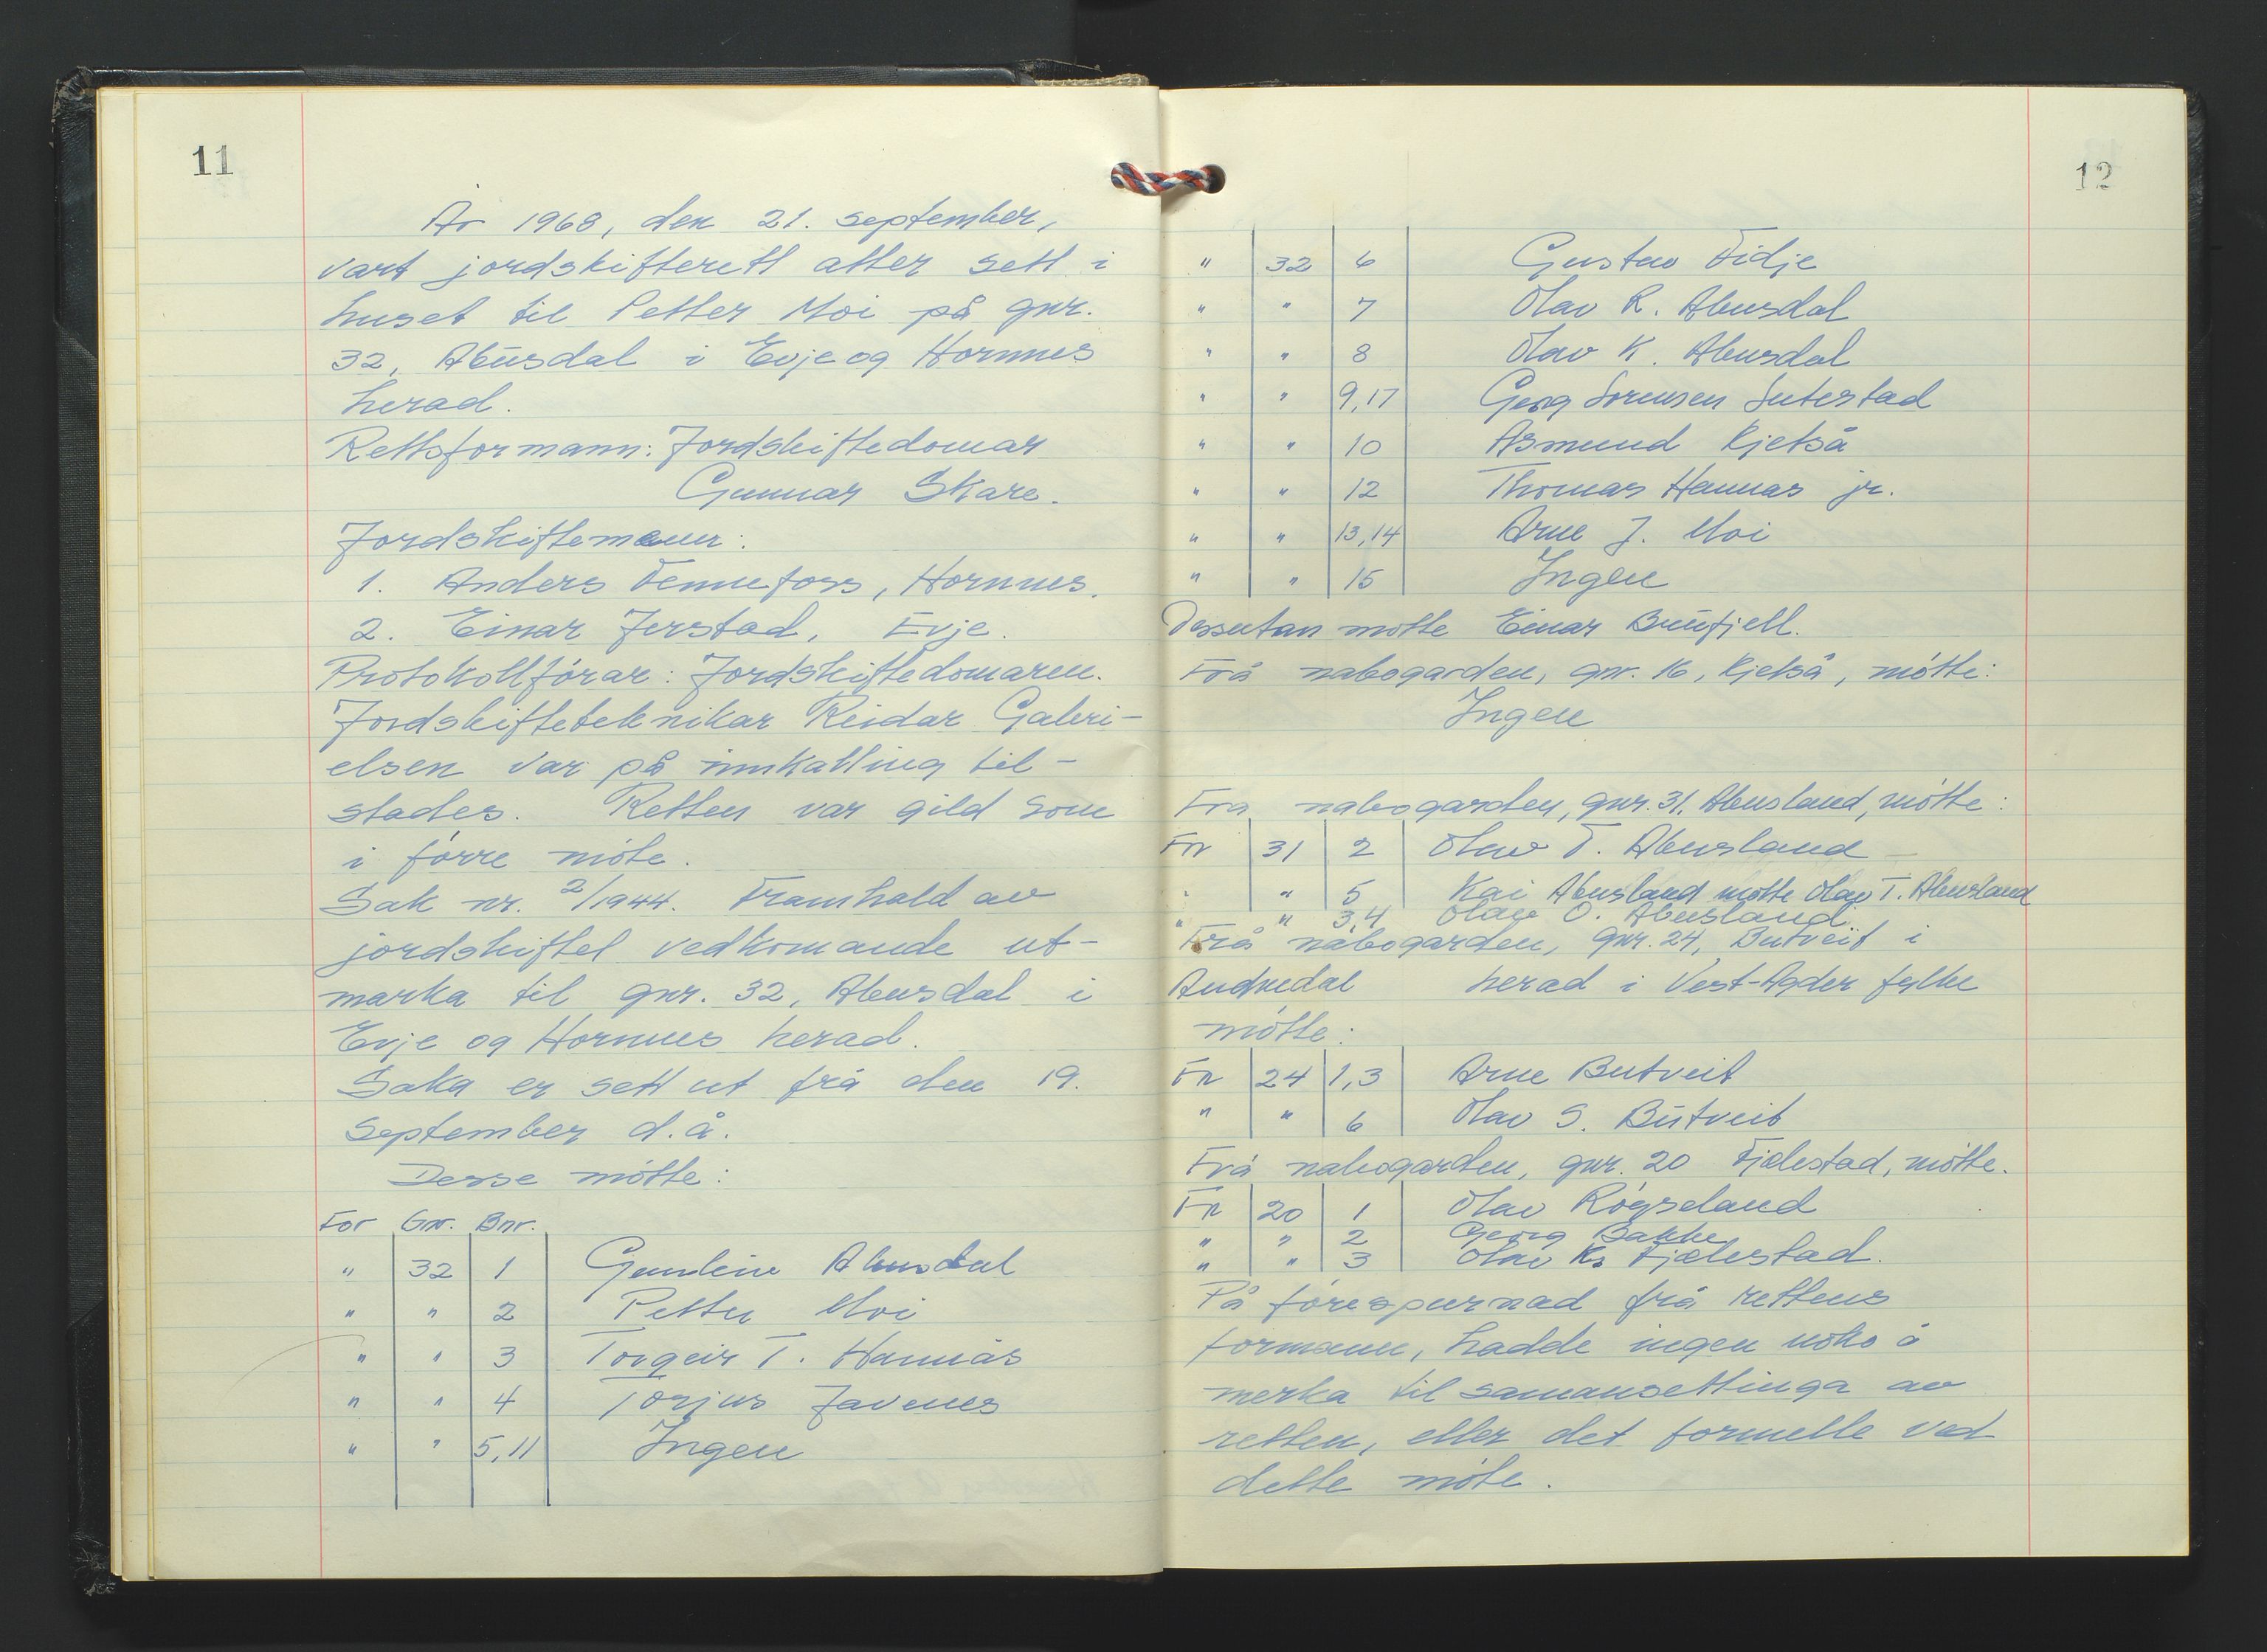 11
År 1968, den 21. september,
vart jordskifterett atter sett i
huset til Petter Moi på gnr.
32, Abusdal i Evje og Hornnes
herad.
Rettsformann: Jordskiftedomar
Gunnar Skare.
Jordskiftemenn:
1. Anders Fennefoss, Hornnes.
2. Einar Jerstad, Evje.
Protokollførar: Jordskiftedomaren.
Jordskifteteknikar Reidar Gabri-
elsen var på innkalling til-
stades. Retten var gild som
i førre møte.
Sak nr. 2/1944. Framhald av
jordskiftet vedkomande ut-
marka til gnr. 32, Abusdal i
Evje og Hornnes herad.
Saka er sett ut frå den 19.
september d.å.
Desse møtte:
For Gnr. Bnr.
" 32 1 Gunleiv Abusdal
" " 2 Petter Moi
" " 3 Torgeir T. Hannås
" " 4 Torjus Favenes
" " 5,11 Ingen
12
" 32 6 Gustav Fidje
" " 7 Olav R. Abusdal
" " 8 Olav K. Abusdal
" " 9,17 Georg Sorensen Sutestad
" " 10 Asmund Kjetså
" " 12 Thomas Hannas jr.
" " 13,14 Arne J. Moi
" " 15 Ingen
Dessutan møtte Einar Brufjell.
Frå nabogarden, gnr. 16, Kjetså, møtte:
Ingen
Fra nabogarden, gnr. 31, Abusland, møtte:
Fr 31 2 Olav T. Abusland
" " 5 Kai Abusland møtte Olav T. Abusland
" " 3,4 Olav O. Abusland
Frå nabogarden, gnr. 24, Butveit i
Audnedal herad i Vest-Agder fylke
møtte:
Fr 24 1,3 Arne Butveit
" " 6 Olav S. Butveit
Frå nabogarden, gnr. 20 Fjelestad, møtte.
Fr 20 1 Olav Røgseland
" " 2 Georg Bakke
" " 3 Olav K. Fjelestad.
På førespurnad frå rettens
formann, hadde ingen noko å
merka til samansettinga av
retten, eller det formelle ved
dette møte.